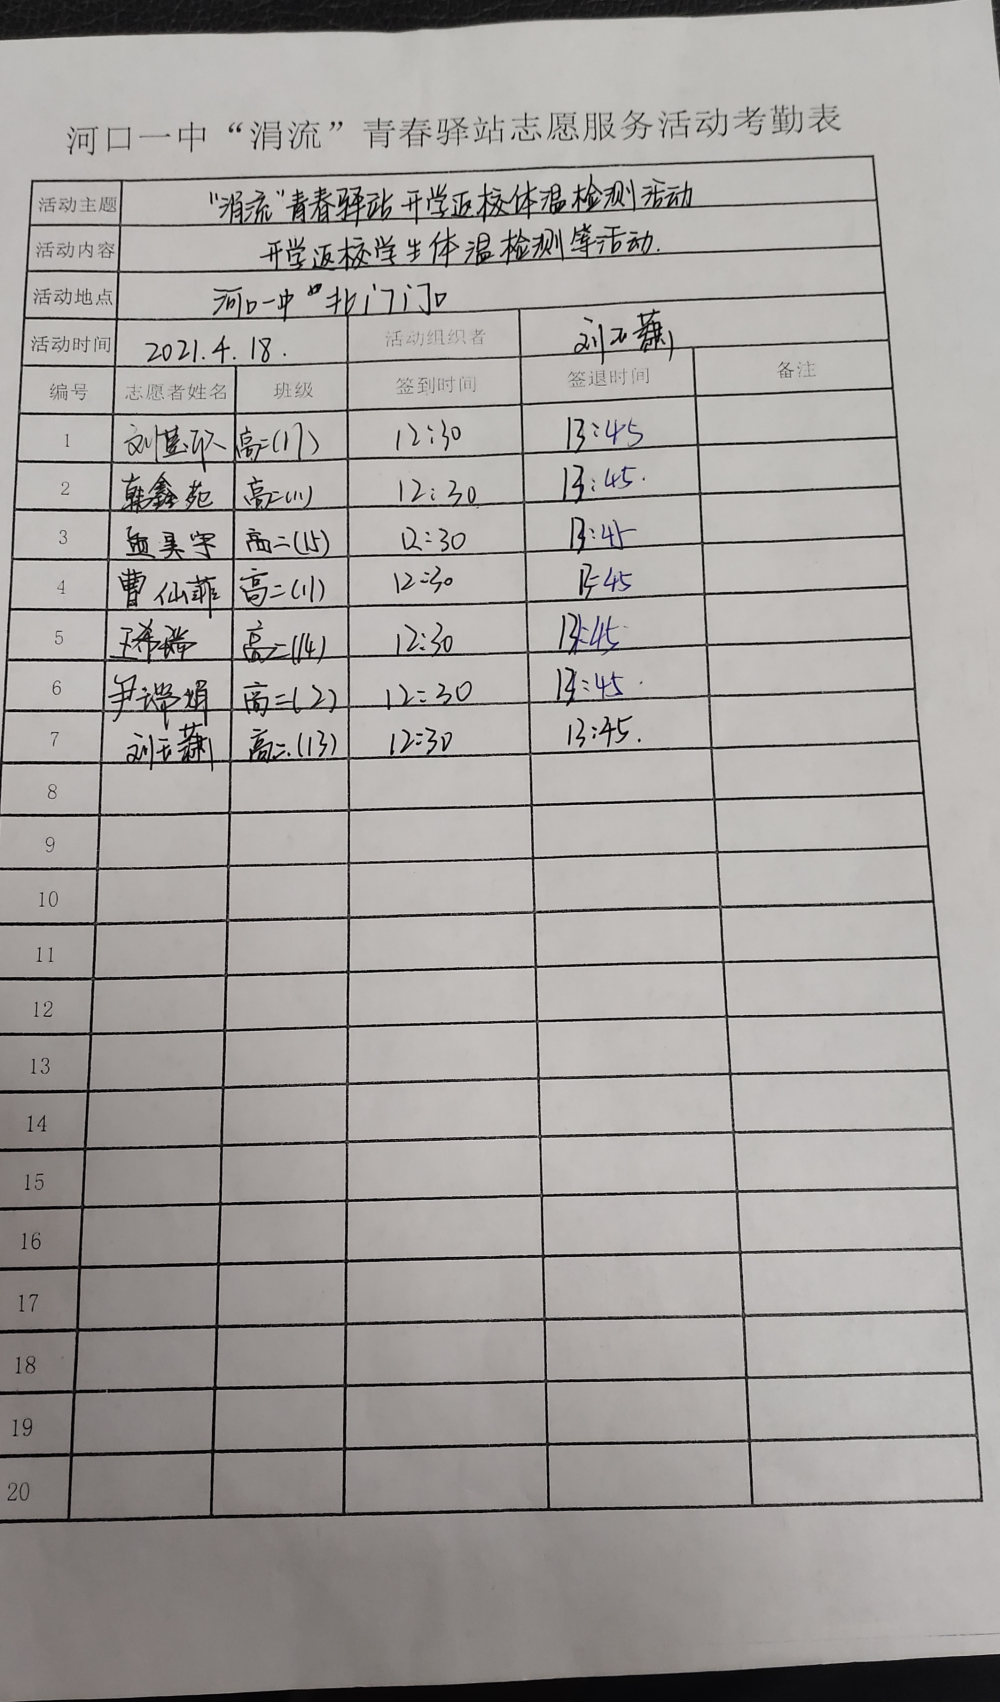 河口一中“涓流”青春驿站志愿服务活动考勤表
活动主题 “涓流”青春驿站开学返校体温检测活动
活动内容 开学返校学生体温检测等活动.
活动地点 河口一中 北门门口
活动时间 2021.4.18. 活动组织者 刘玉蕭
编号 志愿者姓名 班级 签到时间 签退时间 备注
1 高二(17) 12:30 13:45
2 韩鑫苑 高二(11) 12:30 13:45.
3 孟昊宇 高二(15) 12:30 13:45
4 曹仙菲 高二(11) 12:30 13:45
5 王希瑞 高二(14) 12:30 13:45
6 尹瑞娟 高二(2) 12:30 13:45.
7 刘玉蕭 高二.(13) 12:30 13:45.
8
9
10
11
12
13
14
15
16
17
18
19
20